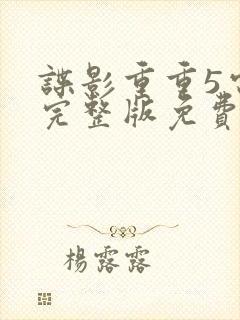 諜影重重5
完整版免費
楊露露